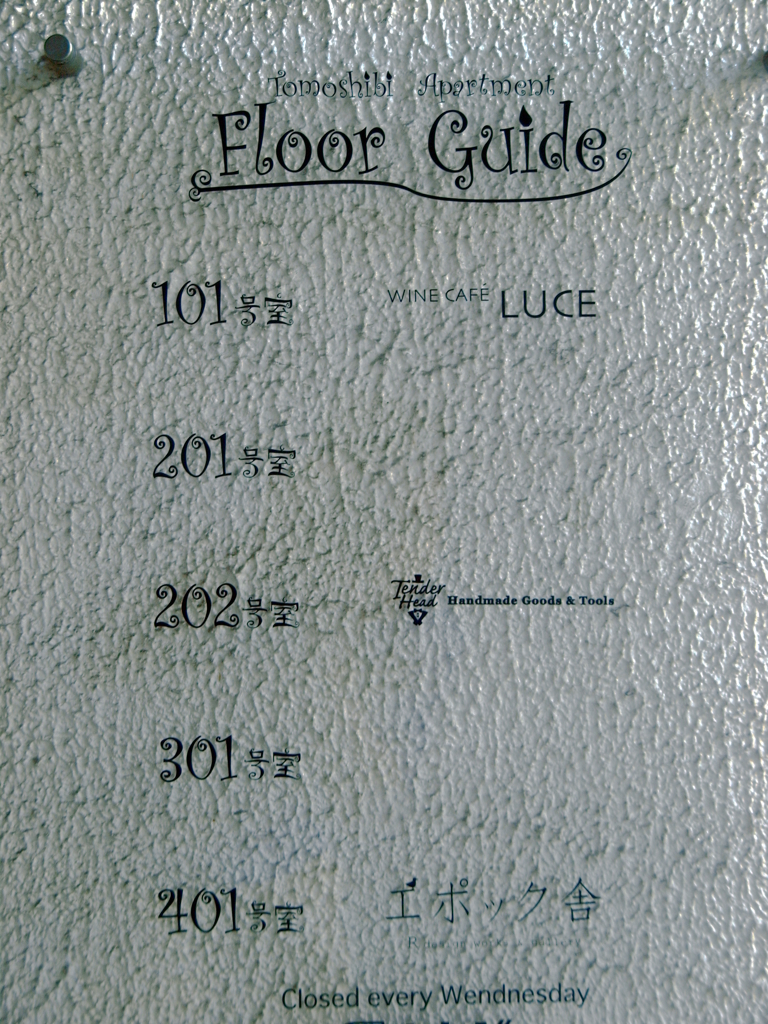 Tomoshibi Apartment
Floor Guide
101号室 WINE CAFÉ LUCE
201号室
202号室 Tender Head Handmade Goods & Tools
301号室
401号室 エポック舎
Closed every Wendnesday